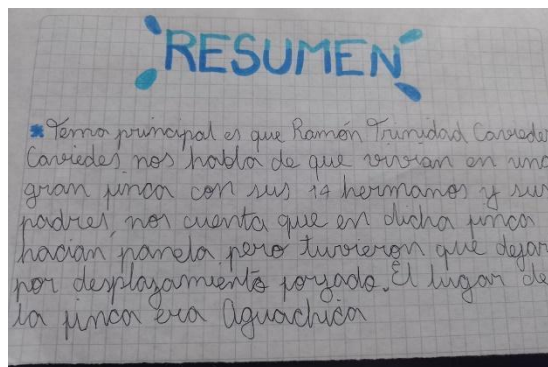 RESUMEN
* Tema principal es que Ramón Trinidad Caviedes
Caviedes nos habla de que vivian en una
gran finca con sus 14 hermanos y sus
padres, nos cuenta que en dicha finca
hacian panela pero tuvieron que dejar
por desplazamiento forzado. El lugar de
la finca era Aguachica